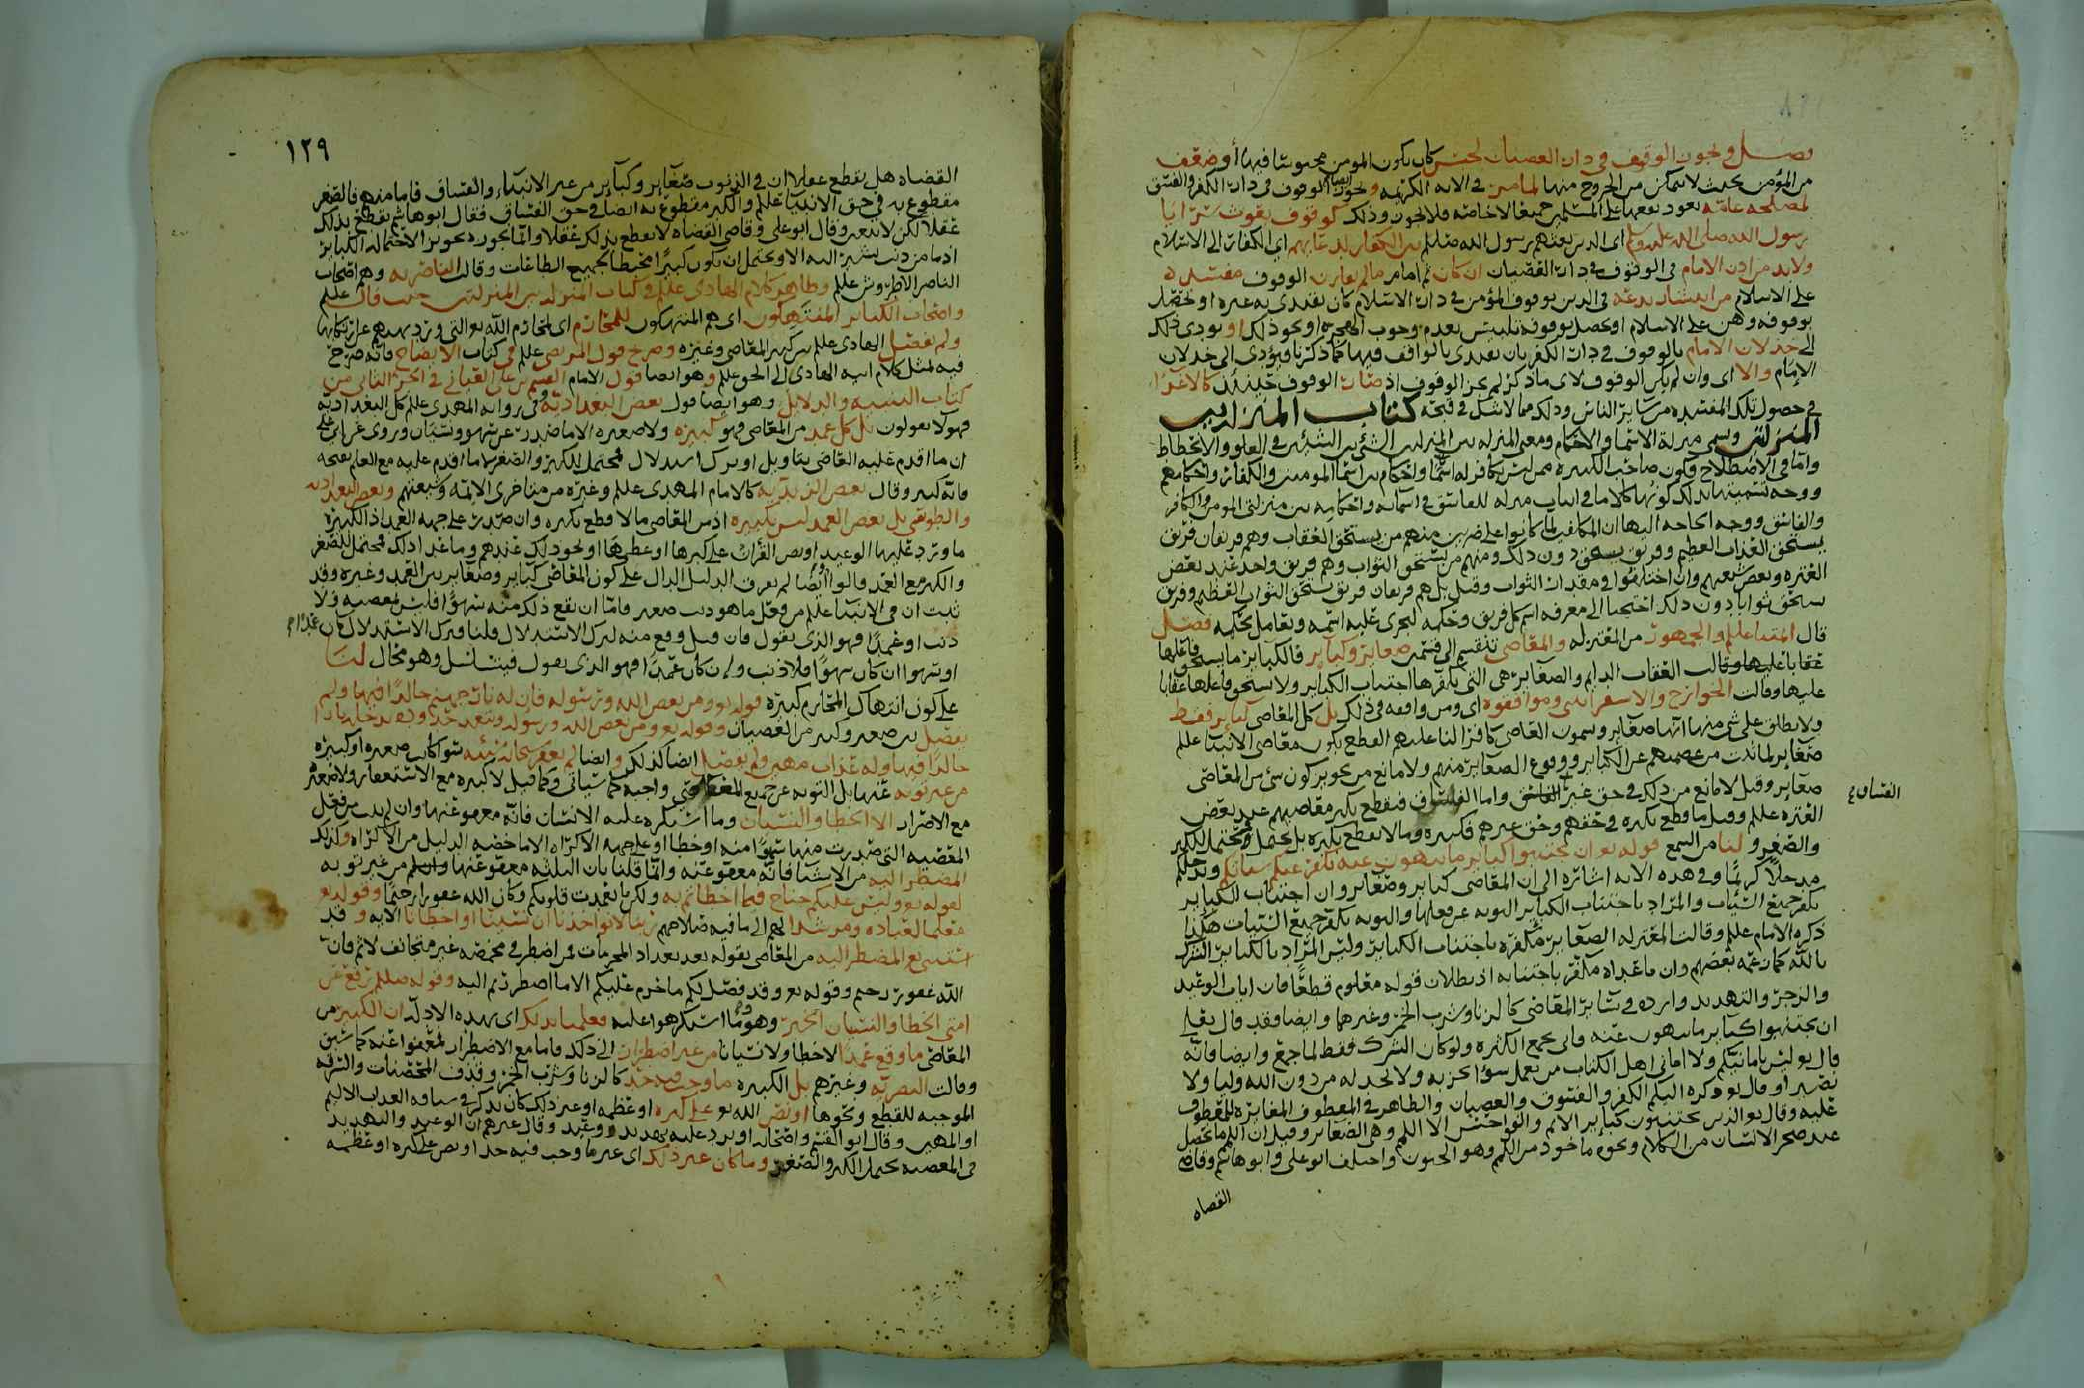 فصل ويجوز الوقوف في دار العصيان لحبس كان يكون المؤمن محبوسا فيها أو ضعف
من المؤمن بحيث لا يتمكن من الخروج منها لما مر في الآية الكريمة ويجوز أيضا الوقوف في دار الكفر والفسق
لمصلحة عامة يعود نفعها على المسلمين جميعا لا خاصة فلا يجوز وذلك كوقوف بعوث سرايا
رسول الله صلى الله عليه وسلم أي الذين بعثهم رسول الله صللم بين الكفار لدعائهم أي الكفار إلى الاسلام
ولا بد من إذن الإمام في الوقوف في دار العصيان إن كان ثم إمام ما لم يعارض الوقوف مفسدة
على الاسلام من إيشاد بدعة في الدين بوقوف المؤمن في دار الاسلام كان يقتدي به غيره أو يحصل
بوقوفه وهن على الاسلام أو يحصل بوقوفه تلبيس بعدم وجوب الهجرة أو نحو ذلك أو يؤدي ذلك
إلى خذلان الإمام بالوقوف في دار الكفر بأن يقتدى بالواقف فيها كما ذكرنا فيؤدي إلى خذلان
الإمام وإلا أي وإن لم يكن الوقوف لأي ما ذكر لم يجز الوقوف إذ صار الوقوف حينئذ كالإغراء
في حصول تلك المفسدة من سائر الناس وذلك مما لا شك في قبحه كتاب المنزلة بين
المنزلتين وتسمى منزلة الأسماء والأحكام ومعنى المنزلة بين المنزلتين الشيء بين الشيئين في العلو والانحطاط
وأما في الاصطلاح فكون صاحب الكبيرة ممن ليس بكافر له أسماء وأحكام بين أسماء المؤمنين والكفار وأحكامهم
ووجه تسميتها بذلك كونها كلاما في إثبات منزلة للفاسق في أسمائه وأحكامه بين منزلتي المؤمن والكافر
والفاسق ووجه الحاجة إليها أن المكلفين لما كانوا على ضربين منهم من يستحق العقاب وهم فريقان فريق
يستحق العذاب العظيم وفريق يستحق دون ذلك ومنهم من يستحق الثواب وهم فريق واحد عند بعض
العترة وبعض شيعتهم وإن اختلفوا في مقدار الثواب وقيل بل هم فريقان فريق يستحق الثواب العظيم وفريق
يستحق ثوابا دون ذلك احتجنا إلى معرفة اسم كل فريق وحكمه ليجرى عليه اسمه ويعامل بحكمه فصل
قال أئمتنا عللم والجمهور من المعتزلة والمعاصي تنقسم إلى قسمين صغائر وكبائر فالكبائر ما يستحق فاعلها
عقابا عليها وقالت العقاب الدائم والصغائر هي التي يكفرها اجتناب الكبائر ولا يستحق فاعلها عقابا
عليها وقالت الخوارج والاسفرائيني وموافقوه أي ومن وافقه في ذلك بل كل المعاصي كبائر فقط
ولا يطلق على شيء منها أنها صغائر وسموا العاصي كافرا لنا عليهم القطع بكون معاصي الأنبياء عللم
صغائر لما ثبت من عصمتهم عن الكبائر ووقوع الصغائر منهم ولا مانع من تجويز كون شيء من المعاصي
صغائر وقيل لا مانع من ذلك في حق غير الفاسق وأما الفساق فيقطع بكبر معاصيهم عند بعض
الفساق
العترة عللم وقيل ما قطع بكبره في حقهم وحق غيرهم فكبيرة وما لا يقطع بكبره بل يحتمل فمحتمل للكبر
والصغر ولنا من السمع قوله تع إن تجتنبوا كبائر ما تنهون عنه نكفر عنكم سيئاتكم وندخلكم
مدخلا كريما وفي هذه الآية إشارة إلى أن المعاصي كبائر وصغائر وإن اجتناب الكبائر
يكفر جميع السيئات والمراد باجتناب الكبائر التوبة عن فعلها والتوبة تكفر جميع السيئات هكذا
ذكره الإمام عللم وقالت المعتزلة الصغائر مكفرة باجتناب الكبائر وليس المراد بالكبائر الشرك
بالله كما زعمه بعضهم وإن ما عداه مكفر باجتنابه إذ بطلان قوله معلوم قطعا فآيات الوعيد
والزجر والتهديد واردة في سائر المعاصي كالزنا وشرب الخمر وغيرها وأيضا فقد قال تعلى
إن تجتنبوا كبائر ما تنهون عنه وأتى بجمع الكثرة ولو كان الشرك فقط لما جمع وأيضا فإنه
قال تع ليس بأمانيكم ولا أماني أهل الكتاب من يعمل سوءا يجز به ولا يجد له من دون الله وليا ولا
نصيرا وقال تع وكره إليكم الكفر والفسوق والعصيان والظاهر في المعطوف المغايرة للمعطوف
عليه وقال تع والذين يجتنبون كبائر الإثم والفواحش إلا اللمم وهي الصغائر وقيل إن اللمم ما يحصل
عند ضجر الانسان من الكلام ونحوه مأخوذ من اللمم وهو الجنون واختلف أبو علي وأبو هاشم وقاضي
القضاة
١٢٩
القضاة هل يقطع عقلا أن في الذنوب صغائر وكبائر من غير الأنبياء والفساق فأما منهم فالصغر
مقطوع به في حق الأنبياء عللم والكبر مقطوع به أيضا في حق الفساق فقال أبو هاشم يقطع بذلك
عقلا لكن لا يتعين وقال أبو علي وقاضي القضاة لا يقطع بذلك عقلا وإنما يجوز تجويز الاحتمال الكبائر
إذ ما من ذنب نشير إليه إلا ويحتمل أن يكون كبيرا محبطا لجميع الطاعات وقالت الناصرية وهم أصحاب
الناصر الأطروش عللم وظاهر كلام الهادي عللم في كتاب المنزلة بين المنزلتين حيث قال عللم
وأصحاب الكبائر المنتهكون أي هم المنتهكون للمحارم أي لمحارم الله تع التي ورد نهيهم عن ارتكابها
ولم يفصل الهادي عللم بين كبير المعاصي وغيره وصرح قول المرتضى عللم في كتاب الإيضاح فإنه صرح
فيه بمثل كلام أبيه الهادي إلى الحق عللم وهو أيضا قول الإمام القسم بن علي العياني في الجزء الثاني من
كتاب التنبيه والدلايل وهو أيضا قول بعض البغدادية وفي رواية المهدي عللم كل البغدادية
فهؤلاء يقولون بل كل عمد من المعاصي فهو كبيرة ولا صغيرة إلا ما صدرت عن سهو ونسيان وروي عن أبي علي
أن ما أقدم عليه العاصي بتأويل أو ترك استدلال فمحتمل للكبر والصغر لا ما أقدم عليه مع العلم بقبحه
فإنه كبير وقال بعض الزيدية كالإمام المهدي عللم وغيره من متأخري الأئمة وشيعتهم وبعض البغدادية
والبصرية بل بعض العمد ليس بكبيرة إذ من المعاصي ما لا قطع بكبره وإن صدرت على جهة العمد إذ الكبيرة
ما ورد عليها الوعيد أو نص القرآن على كبرها أو عظمها أو نحو ذلك عندهم وما عدا ذلك فمحتمل للصغر
والكبر مع العمد قالوا أيضا لم يعرف الدليل الدال على كون المعاصي كبائر وصغائر بين العمد وغيره وقد
ثبت أن في الأنبياء عللم من فعل ما هو ذنب صغير فأما أن يقع ذلك منه سهوا فليس بمعصية ولا
ذنب أو عمدا فهو الذي نقول فإن قيل وقع منه لترك الاستدلال قلنا وترك الاستدلال إن كان عمدا
أو سهوا إن كان سهوا فلا ذنب وإن كان عمدا فهو الذي نقول فيتسلسل وهو محال لنا
على كون انتهاك المحارم كبيرة قوله تع ومن يعص الله ورسوله فإن له نار جهنم خالدا فيها ولم
يفصل بين صغير وكبير من العصيان وقوله تع ومن يعص الله ورسوله ويتعد حدوده يدخله نارا
خالدا فيها وله عذاب مهين ولم يفصل أيضا كذلك وأيضا لم يغفر سبحانه سيئة سواء كانت صغيرة أو كبيرة
من غير توبة عنها بل التوبة عن جميع المعاصي واجبة كما سيأتي وكما قيل لا كبيرة مع الاستغفار ولا صغيرة
مع الاصرار إلا الخطأ والنسيان وما استكره عليه الانسان فإنه معفو عنها وإن لم يتب من فعل
المعصية التي صدرت منها سهوا منه أو خطأ أو على جهة الاكراه إلا ما خصه الدليل من الإكراه وكذلك
المضطر إليه من الأشياء فإنه معفو عنه وإنما قلنا بأن الثلاثة معفو عنها من غير توبة
لقوله تع وليس عليكم جناح فيما أخطأتم به ولكن ما تعمدت قلوبكم وكان الله غفورا رحيما وقوله تع
معلما لعباده ومرشدا لهم إلى ما فيه صلاحهم ربنا لا تؤاخذنا إن نسينا أو أخطأنا الآية وقد
استثنى تع المضطر إليه من المعاصي بقوله بعد تعداد المحرمات فمن اضطر في مخمصة غير متجانف لإثم فإن
الله غفور رحيم وقوله تع وقد فصل لكم ما حرم عليكم إلا ما اضطررتم إليه وقوله صللم رفع عن
أمتي الخطأ والنسيان الخبر وهو وما استكرهوا عليه فعلمنا بذلك أي بهذه الأدلة أن الكبير من
المعاصي ما وقع عمدا لا خطأ ولا نسيانا من غير اضطرار إلى ذلك فأما مع الاضطرار فمعفو عنه كما تبين
وقالت البصرية وغيرهم بل الكبيرة ما وجب فيه حد كالزنا وشرب الخمر وقذف المحصنات والسرقة
الموجبة للقطع ونحوها أو نص الله تع على كبره أو عظمه أو غير ذلك كأن يذكر في سياقه العذاب الأليم
أو المهين وقال أبو القسم وأصحابه أو يرد عليه تهديد ووعيد وقال غيرهم إن الوعيد والتهديد
في المعصية يحتمل الكبر والصغر وما كان غير ذلك أي غير ما وجب فيه حد أو نص على كبره أو عظمه